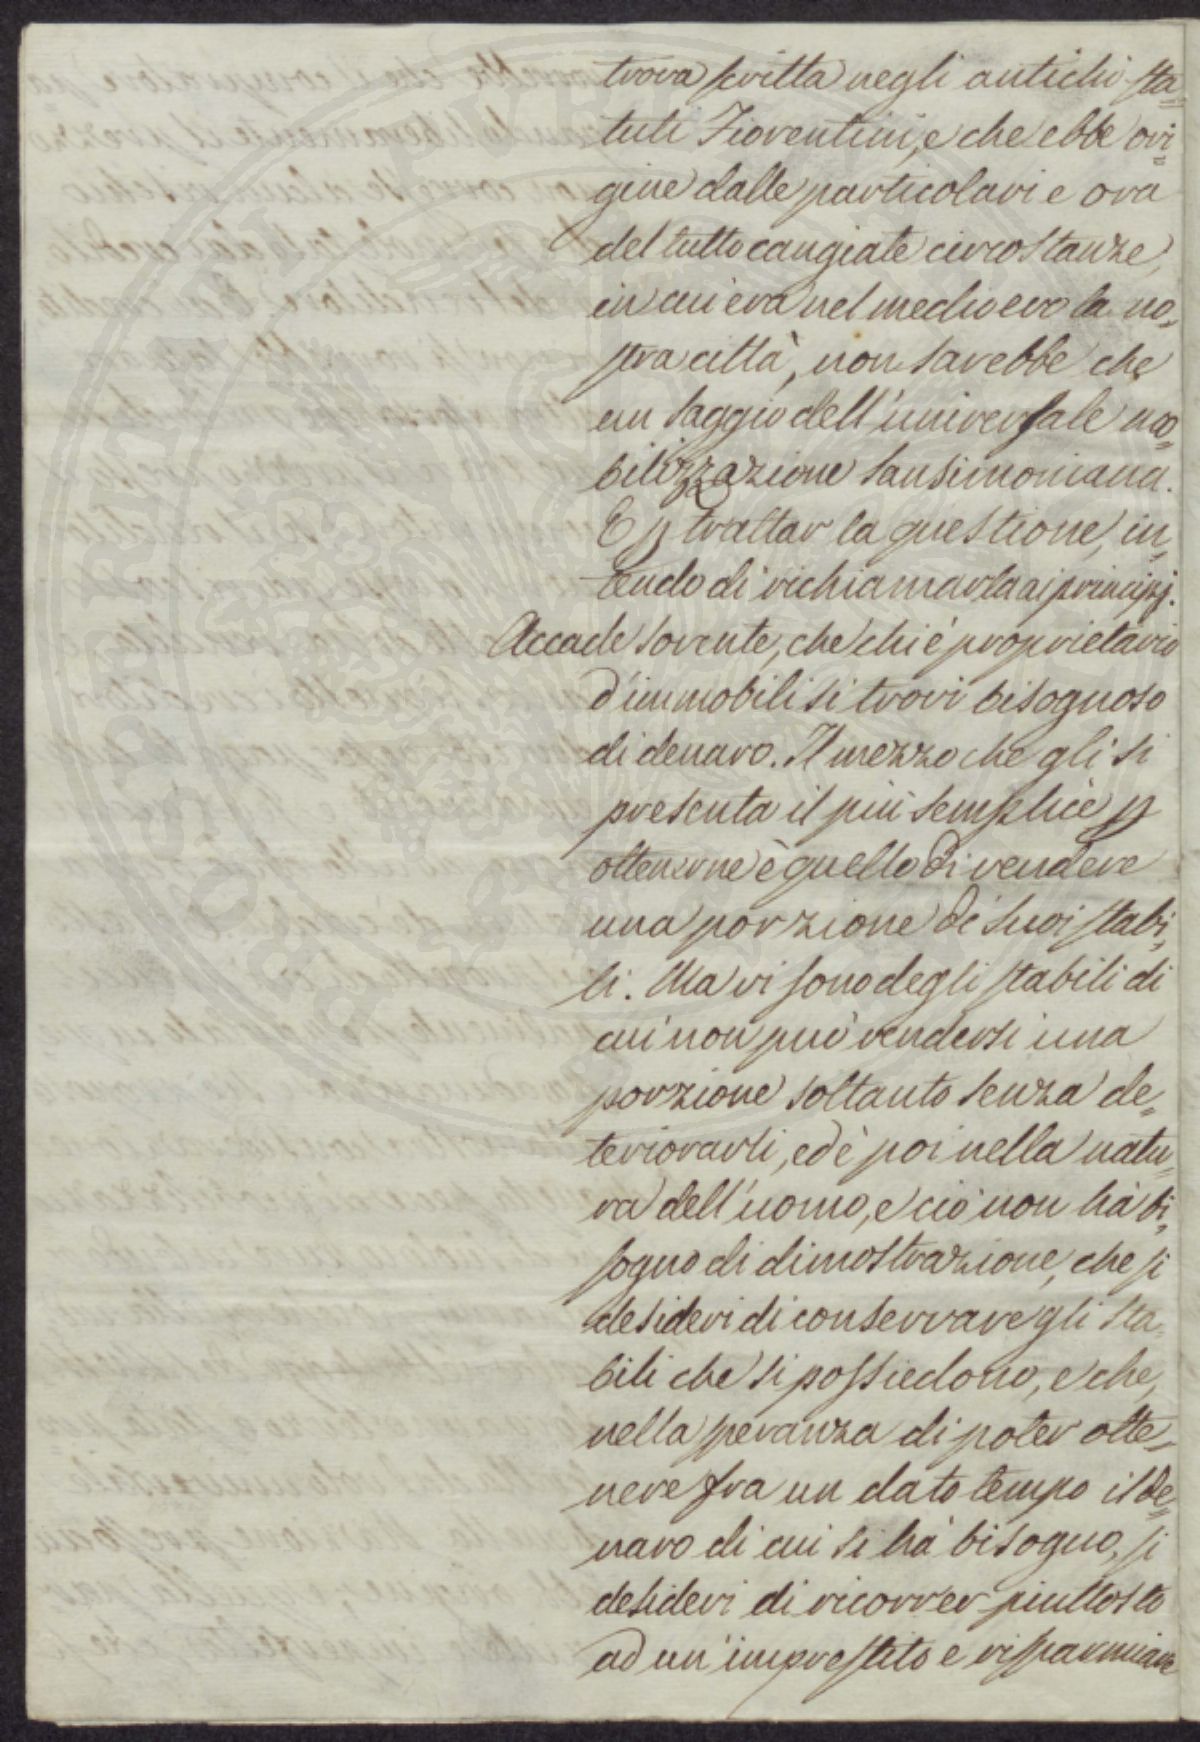 trova scritta negli antichi sta=
tuti Fiorentini, e che ebbe ori=
gine dalle particolari e ora
del tutto cangiate circostanze,
in cui era nel medio evo la no=
stra città, non sarebbe che
un saggio dell'universale mo=
bilizzazione sansimoniana.
E p trattar la questione, in=
tendo di richiamarla ai principj.
Accade sovente, che chi è proprietario
d'immobili si trovi bisognoso
di denaro. Il mezzo che gli si
presenta il più semplice p
ottenerne è quello di vendere
una porzione de' suoi stabi=
li. Ma vi sono degli stabili di
cui non può vendersi una
porzione soltanto senza de=
teriorarli, ed è poi nella natu=
ra dell'uomo, e ciò non hà bi=
sogno di dimostrazione, che si
desideri di conservare gli sta=
bili che si possiedono, e che,
nella speranza di poter otte=
nere fra un dato tempo il de=
naro di cui si hà bisogno, si
desideri di ricorrer piuttosto
ad un'imprestito e risparmiare